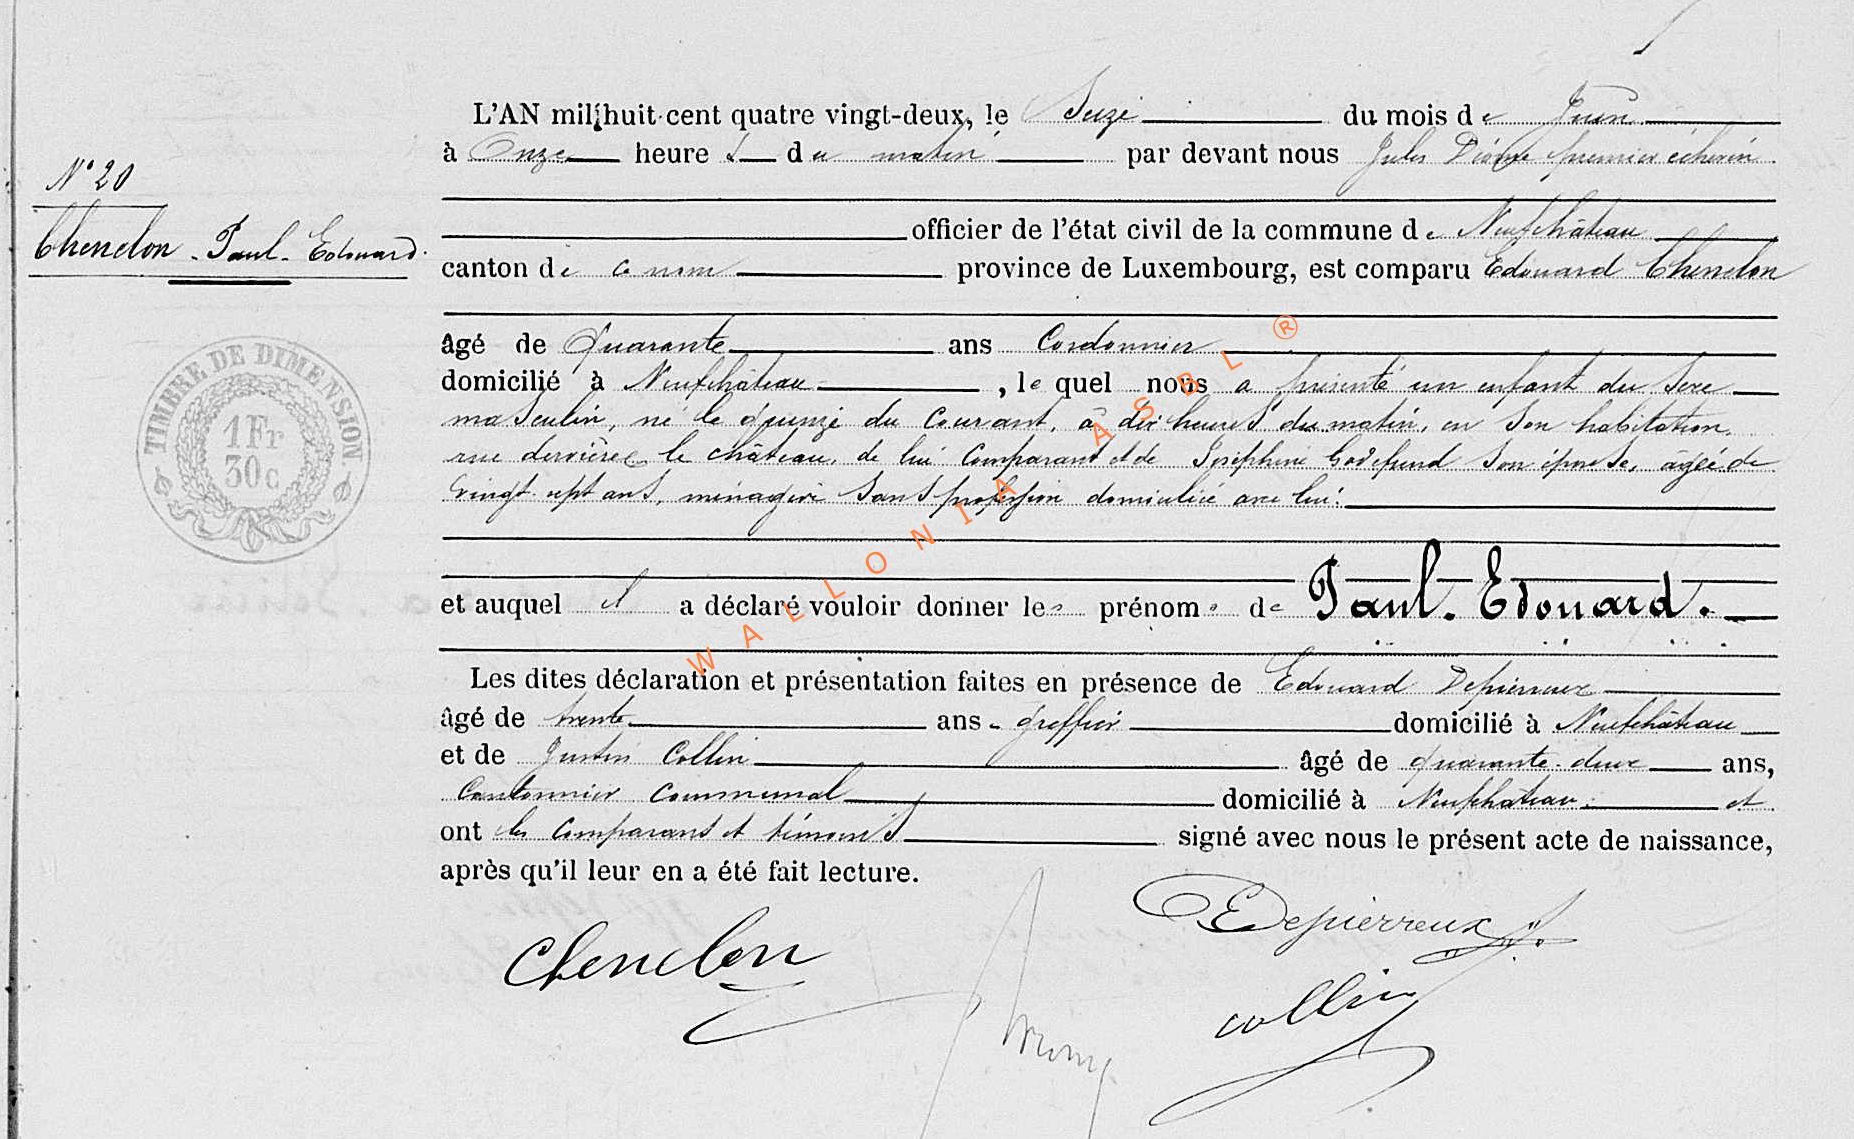 L'AN mil huit cent quatre vingt-deux, le Seize du mois de Juin
à Onze heures du matin par devant nous Jules premier échevin
N° 20
officier de l'état civil de la commune de Neufchâteau
Chenelon - Paul - Edouard.
canton de ce nom province de Luxembourg, est comparu Edouard Chenelon
âgé de Quarante ans Cordonnier
domicilié à Neufchâteau, lequel nous a présenté un enfant du sexe
masculin, né le quinze du courant, à dix heures du matin, en son habitation,
rue derrière le château, de lui comparant et de Joséphine Godefrind son épouse, âgée de
vingt sept ans, ménagère sans profession domiciliée avec lui.
TIMBRE DE DIMENSION.
1 Fr
30 c
et auquel il a déclaré vouloir donner les prénoms de Paul-Edouard.
Les dites déclaration et présentation faites en présence de Edouard Depierreux
âgé de trente ans - greffier domicilié à Neufchâteau
et de Justin Collin âgé de quarante-deux ans,
Cantonnier communal domicilié à Neufchâteau et
ont les comparant et témoins signé avec nous le présent acte de naissance,
après qu'il leur en a été fait lecture.
Chenelon
EDepierreux
collin
WALLONIA ASBL ®